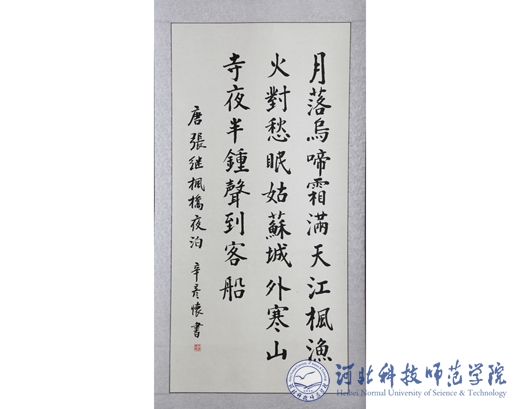 月落烏啼霜滿天江楓漁
火對愁眠姑蘇城外寒山
寺夜半鍾聲到客船
唐張继楓橋夜泊 辛彦懷書
河北科技师范学院
Hebei Normal University of Science & Technology